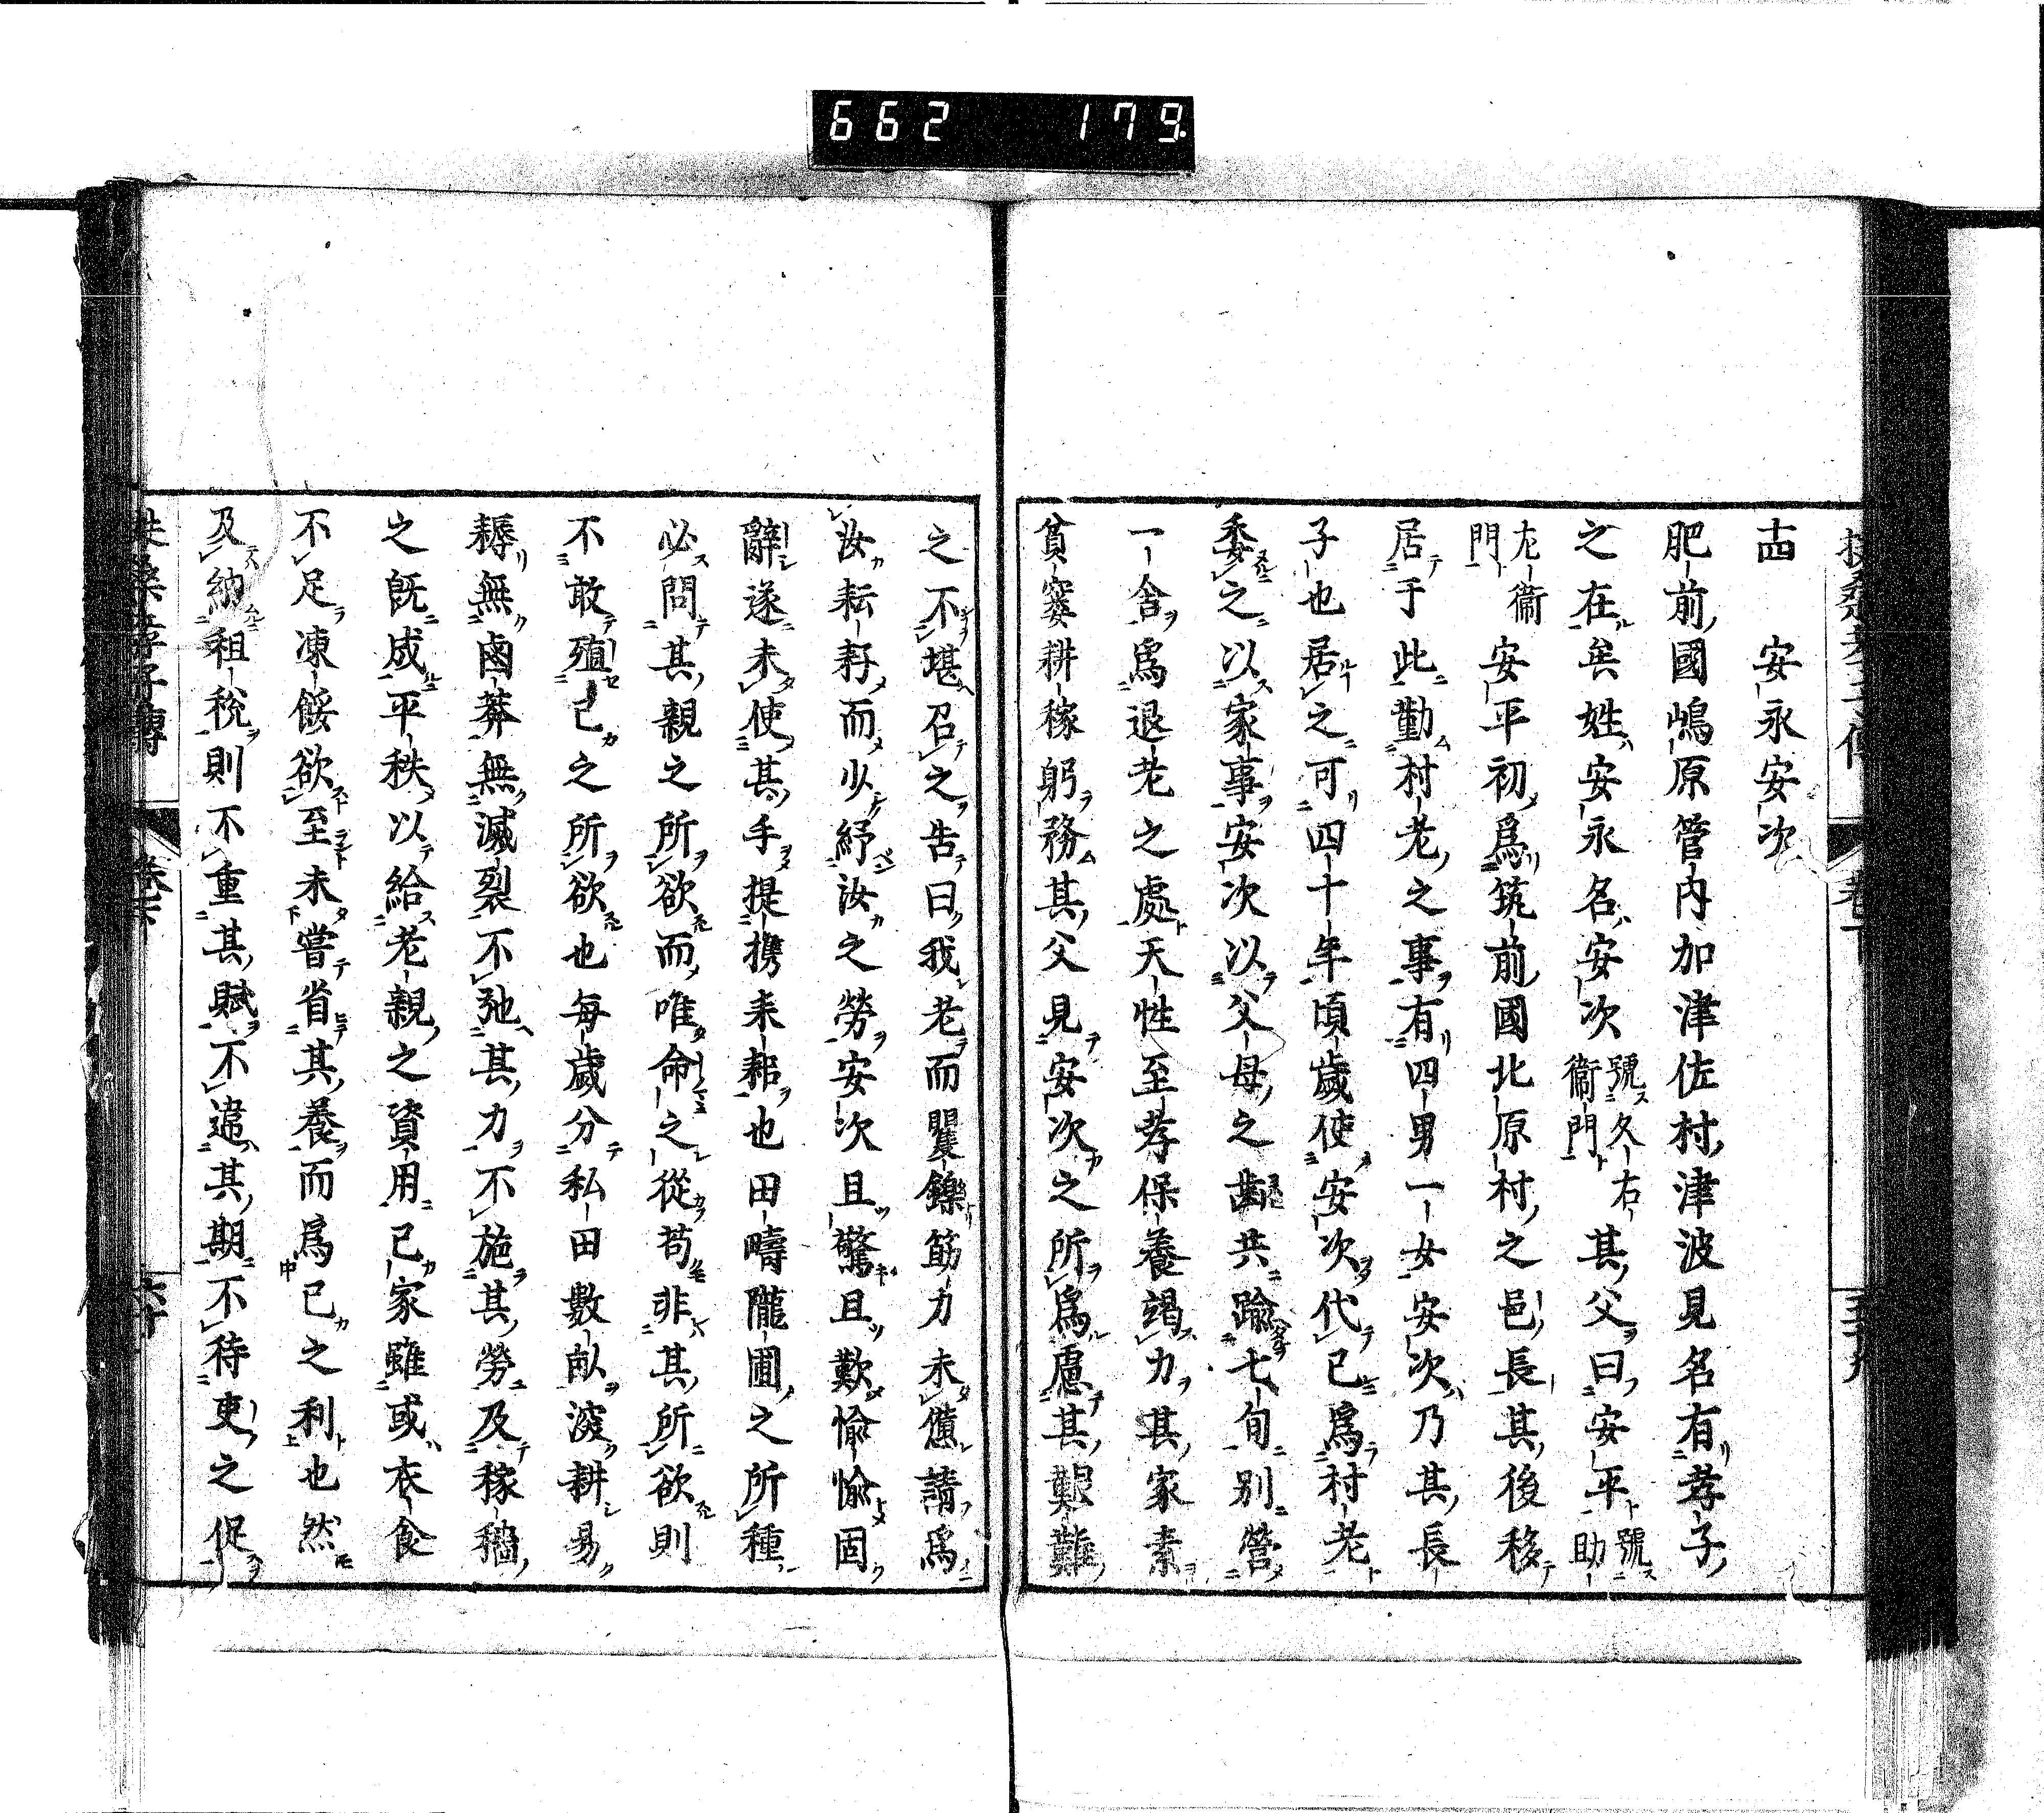 662 179
十四 安永安次
肥前國嶋原管内加津佐村津波見名有孝子
之在矣姓安永名安次號久右衞門其父曰安平號助
左衞門安平初爲筑前國北原村之邑長其後移
居于此勤村老之事有四男一女安次乃其長
子也居之可四十年頃歲使安次代已爲村老
委之以家事安次以父母之齒共踰七旬別營
一舍爲退老之處天性至孝保養竭力其家素
貧窶耕稼躬務其父見安次之所爲慮其艱難
之不堪召之告曰我老而矍鑠筋力未憊請爲
汝耘耔而少紓汝之勞安次且驚且歎愉愉固
辭遂未使其手提攜耒耜也田疇隴圃之所種
必問其親之所欲而唯命之從苟非其所欲則
不敢殖己之所欲也每歲分私田數畝深耕易
耨無鹵莽無滅裂不弛其力不施其勞及稼穡
之既成平秩以給老親之資用己家雖或衣食
不足凍餒欲至未嘗省其養而爲已之利也然
及納租稅則不重其賦不違其期不待吏之促
卷下